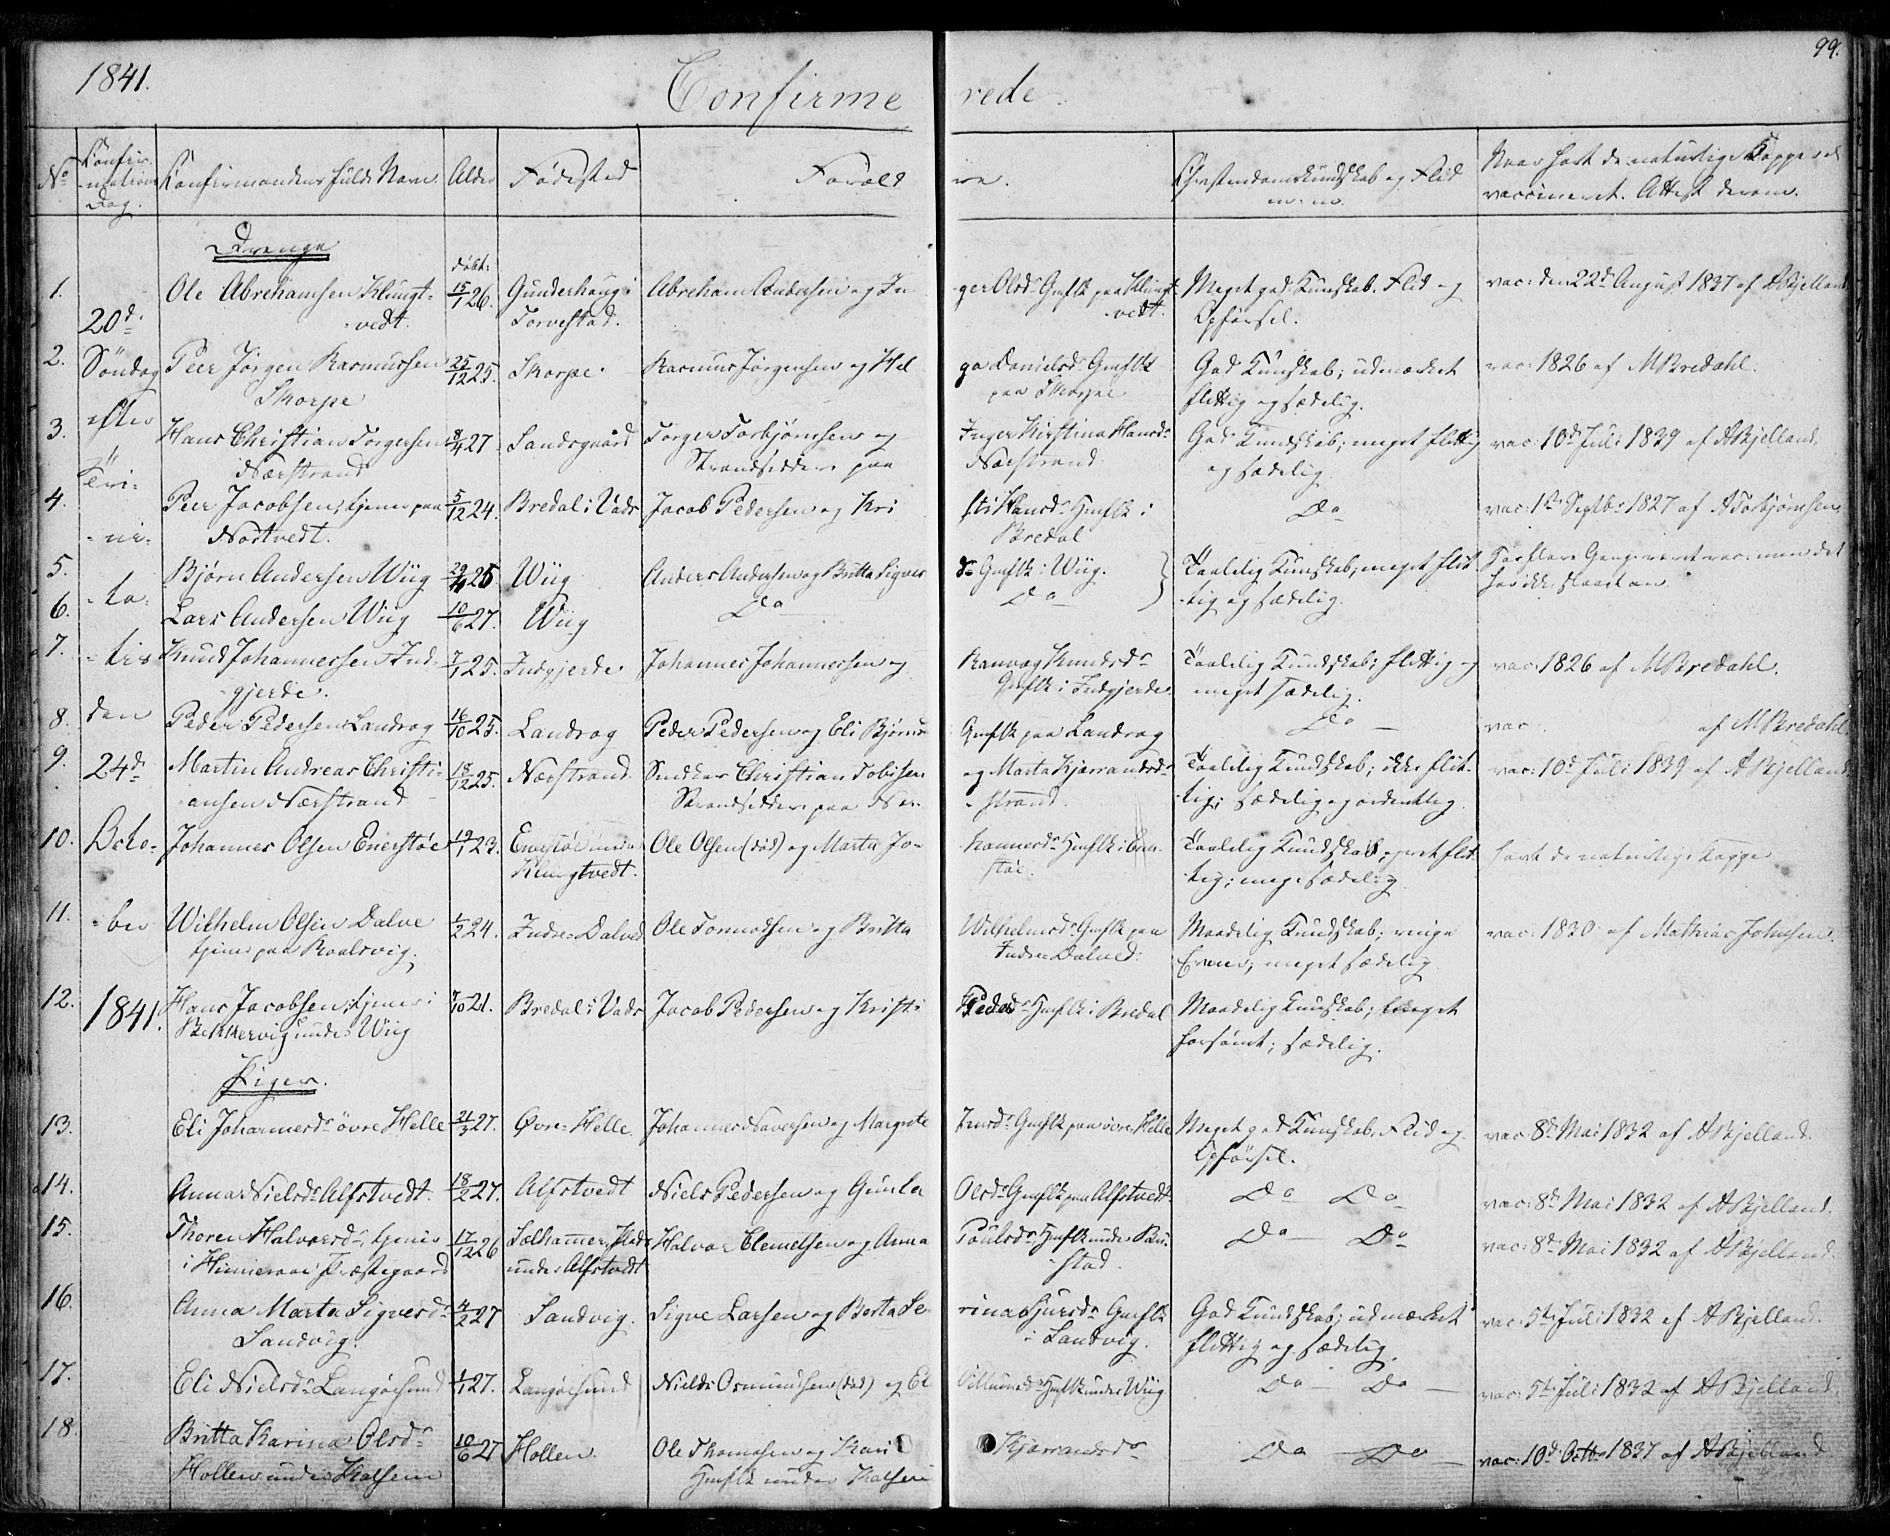 1841.
Confirmerede.
99.
No
Confirmations Dag.
Confirmandens fulde Navn
Alder
Fødested
Forældre.
Christendomskundskab og Flid m. m.
Naar havt de naturlige Kopper el vaccineret. Attest derom.
Drenge
20de Søndag efter Trinitatis den 24de October 1841.
1. Ole Abrahamsen Klungtvedt.
døbt: 15/1 26.
Gunderhaug i Torvestad.
Abraham Andersen og Inger Olsdr Gmflk paa Klungtvedt.
Meget god Kundskab, Flid og Opførsel.
vac: den 22de August 1837 af ABjelland
2. Peer Jørgen Rasmussen Skorpe
25/12 25.
Skorpe.
Rasmus Jørgensen og Helga Danielsdr Gmflk paa Skorpe
God Kundskab; udmærket flittig og sædelig.
vac: 1826 af MBredahl.
3. Hans Christian Torgersen Nærstrand
8/4 27
Sandsgaard
Torger Torbjørnsen og Inger Kirstina Hansdr
Strandsiddere paa Nærstrand
God Kundskab; meget flittig og sædelig.
vac: 10de Juli 1839 af ABjelland.
4. Peer Jacobsen; tjener paa Nortvedt.
5/12 24.
Bredal i Vads
Jacob Pedersen og Kristi Hansdr Hmflk i Bredal
Do
vac: 1ste Septbr 1827 af ATorbjørnsen
5. Bjørn Andersen Wiig
25
Wiig
Anders Andersen og Britta Sigvesdr Gmflk i Wiig.
Taalelig Kundskab; meget flittig og sædelig.
For flere Gange været vac: men det har ikke slaaet an.
6. Lars Andersen Wiig
10/6 27.
Wiig
Do
Do
7. Knud Johannessen Indgjerde.
7/1 25.
Indgjerde.
Johannes Johannessen og Ranvog Knudsdr Gmflk i Indgjerde
Taalelig Kundskab; flittig og meget sædelig.
vac: 1826 af MBredahl.
8. Peder Pedersen Landrog
16/10 25.
Landrog
Peder Pedersen og Eli Bjørnsdr Gmflk paa Landrog
Do
vac. af MBredahl.
9. Martin Andreas Christiansen Nærstrand
18/12 25.
Nærstrand.
Snedker Christian Tobisen og Marta Kjærrandsdr
Strandsiddere paa Nærstrand.
Taalelig Kundskab; ikke flittig; sædelig og ordentlig.
vac: 10de Juli 1839 af ABjelland
10. Johannes Olsen Enerstøe
19/1 23.
Enerstøe under Klungtvedt.
Ole Olsen (død) og Marta Johannesdr Hmflk i Enerstøe.
Taalelig Kundskab; meget flittig; meget sædelig.
havt de naturlige Kopper
11. Wilhelm Olsen Dalve tjener paa Roalsvig.
1/2 24.
Indre-Dalved
Ole Tormodsen og Britta Wilhelmsdr Gmflk paa Indre Dalved.
Maadelig Kundskab; ringe Evner; meget sædelig.
vac: 1830 af Mathias Johnsen.
12. Hans Jacobsen; tjener i Bekkervig under Wiig
7/10 21.
Bredal i Vads
Jacob Pedersen og Kristi Pedersdr Hmflk i Bredal
Maadelig Kundskab; meget forsømt; sædelig.
Piger.
13. Eli Johannesdr øvre Helle
21/3 27.
Øvre-Helle.
Johannes Haversen og Margrete Iversdr Gmflk paa øvre Helle
Meget god Kundskab, Flid og Opførsel.
vac: 8de Mai 1832 af ABjelland.
14. Anna Nielsdr Alfstvedt.
18/2 27.
Alfstvedt
Niels Pedersen og Gunla Olsdr Gmflk paa Alfstvedt
Do Do
vac: 8de Mai 1832 af ABjelland.
15. Thoren Halvorsdr tjener i Hinneraae Præstegaard
17/12 26
Sælhammer Plads under Alfstvedt
Halvor Clemetsen og Anna Poulsdr Hmflk under
Do Do
vac: 8de Mai 1832 af ABjelland.
16. Anna Marta Sigvesdr Sandvig.
4/2 27
Sandvig.
Sigve Larsen og Berta Serina Sjursdr Gmflk i Sandvig.
God Kundskab; udmærket flittig og sædelig.
vac: 5te Juli 1832 af ABjelland.
17. Eli Nielsdr Langøesund
1/1 27.
Langøesund
Niels Osmundsen (død) og Hmflk under Wiig
Do Do
vac: 5te Juli 1832 af ABjelland
18. Britta Karina Olsdr Hollen under Kalsem
10/6 27
Hollen.
Ole Thomasen og Kari Kjærrandsdr
Hmflk under Kalsem
Do Do
vac: 10de Octbr 1837 af ABjelland